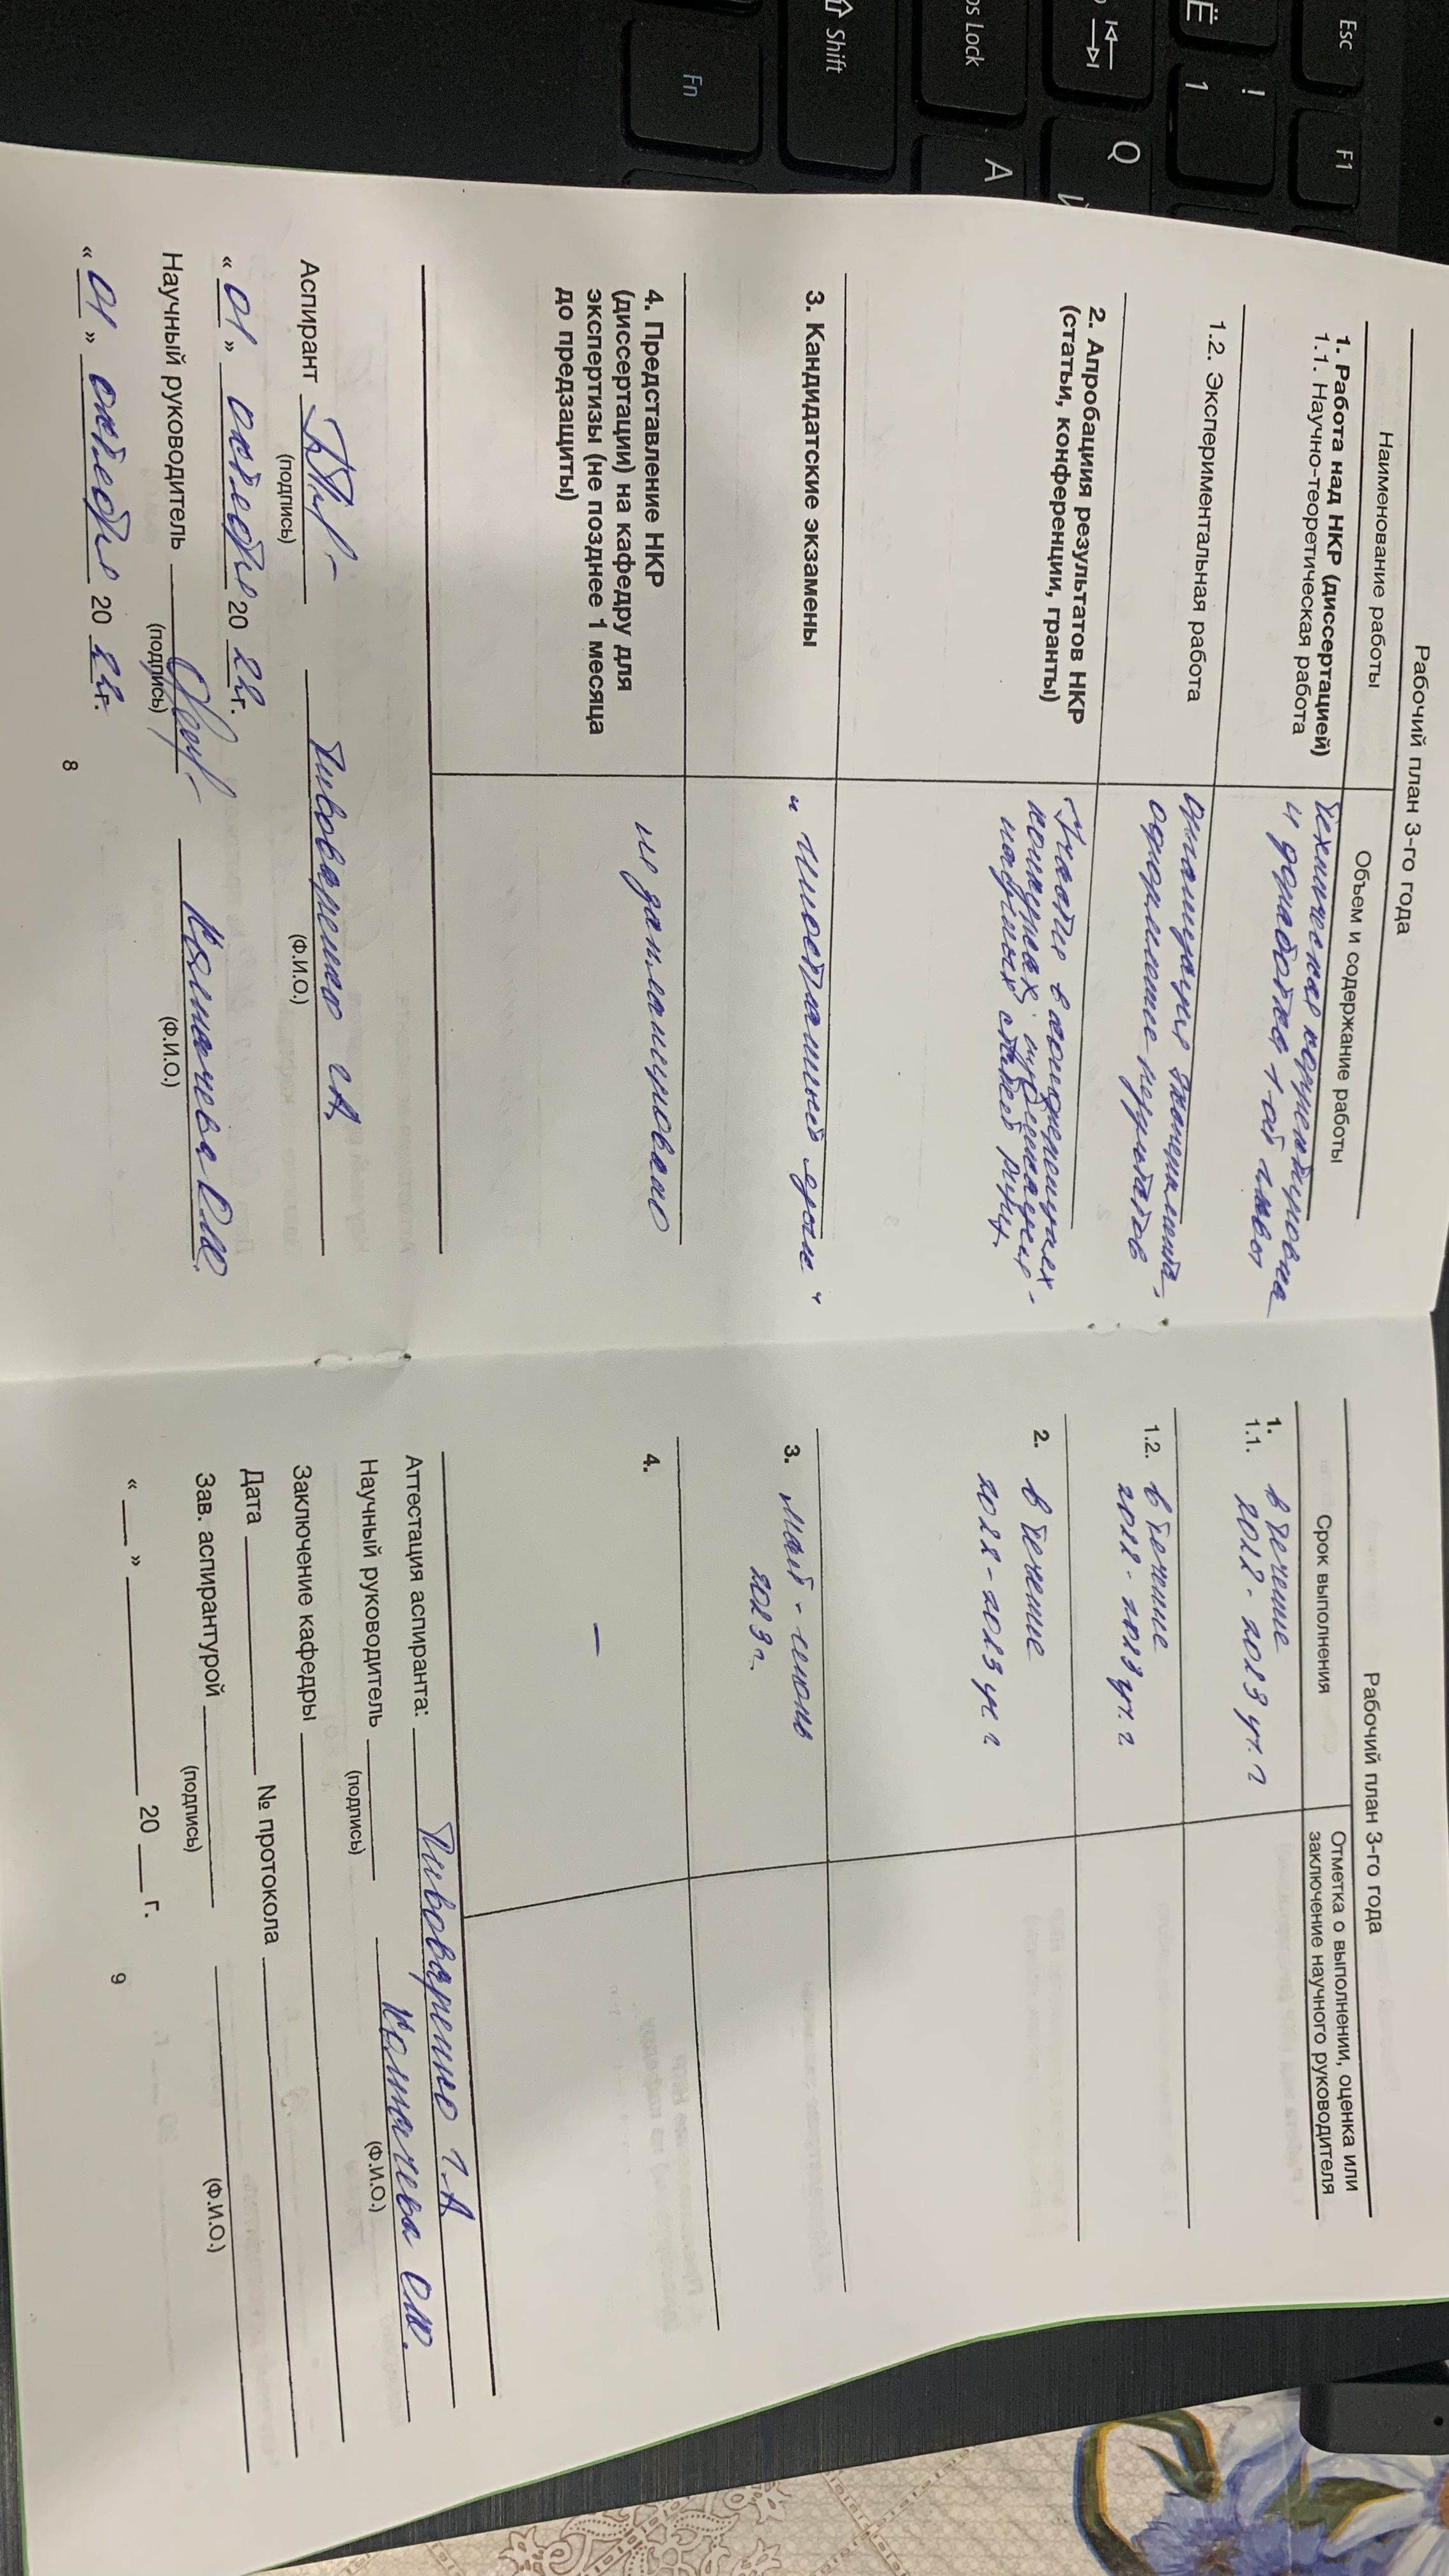 Esc
F1
Ё
!
1
Q
Й
ps Lock
A
Shift
Fn
Рабочий план 3-го года
Наименование работы
Объем и содержание работы
1. Работа над НКР (диссертацией)
1.1. Научно-теоретическая работа
Техническая корректировка
и доработка 1-ой главы
1.2. Экспериментальная работа
эксперимента,
оформление результатов
2. Апробациия результатов НКР
(статьи, конференции, гранты)
Участие в конференциях
конкурсах, публикация -
научных статей РИНЦ.
3. Кандидатские экзамены
"Иностранный язык"
4. Представление НКР
(диссертации) на кафедру для
экспертизы (не позднее 1 месяца
до предзащиты)
не запланировано
Аспирант
Пивоваренко
(подпись)
(Ф.И.О.)
« 01 » октября 20 22 г.
Научный руководитель
Колпачева О.Ю.
(подпись)
(Ф.И.О.)
« 01 » октября 20 22 г.
8
Рабочий план 3-го года
Срок выполнения
Отметка о выполнении, оценка или
заключение научного руководителя
1.
1.1. в течение
2022 - 2023 уч. г
1.2. в течение
2022 - 2023 уч. г
2. в течение
2022 - 2023 уч. г
3. май - июнь
2023 г.
4.
—
Аттестация аспиранта: Пивоваренко
Научный руководитель Колпачева О.Ю.
(подпись)
(Ф.И.О.)
Заключение кафедры
Дата № протокола
Зав. аспирантурой
(подпись)
(Ф.И.О.)
« » 20 г.
9